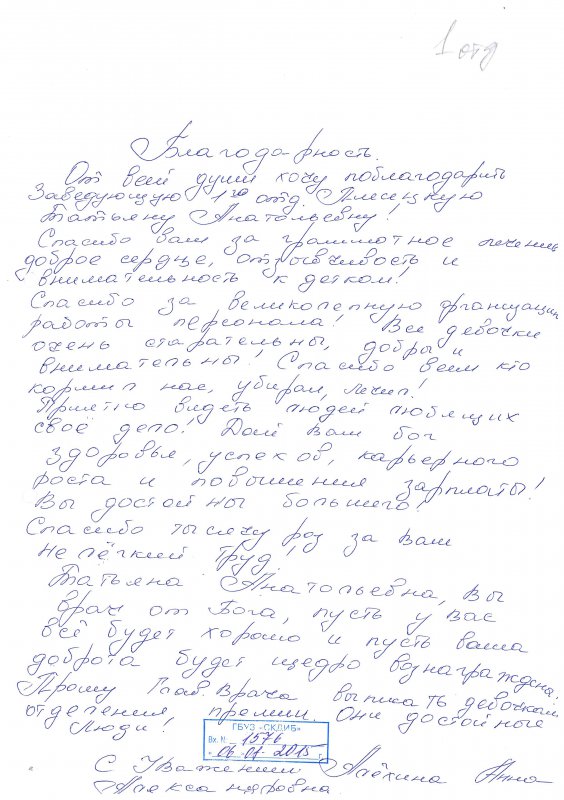 1 отд
Благодарность.
От всей души хочу поблагодарить
Заведующую 1го отд. Плисецкую
Татьяну Анатольевну!
Спасибо вам за грамотное лечение
доброе сердце, отзывчивость и
внимательность к детком!
Спасибо за великолепную организацию
работы персонала! Все девочки
очень старательны, добры и
внимательны! Спасибо всем кто
кормил нас, убирал, лечил!
Приятно видеть людей любящих
своё дело! Дай Вам бог
здоровья, успехов, карьерного
роста и повышения зарплаты!
Вы достойны большего!
Спасибо тысячу раз за Ваш
нелёгкий труд!
Татьяна Анатольевна, Вы
врач от Бога, пусть у вас
всё будет хорошо и пусть ваша
доброта будет щедро вознаграждена.
Прошу Глав. Врача выписать девочкам
отделения премии. Они достойные
Люди!
ГБУЗ «СКДИБ»
Вх. № 1576
« 06 » 01 2015 г.
С Уважением Алёхина Анна
Александровна